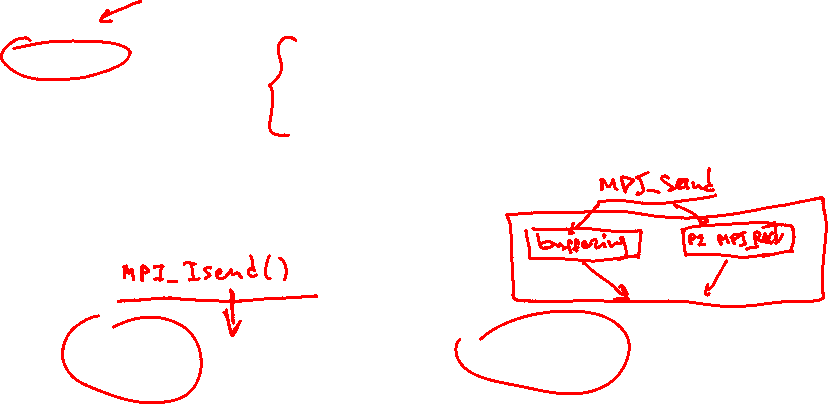 MPI_Send
buffering
P2 MPI_Recv
MPI_Isend()